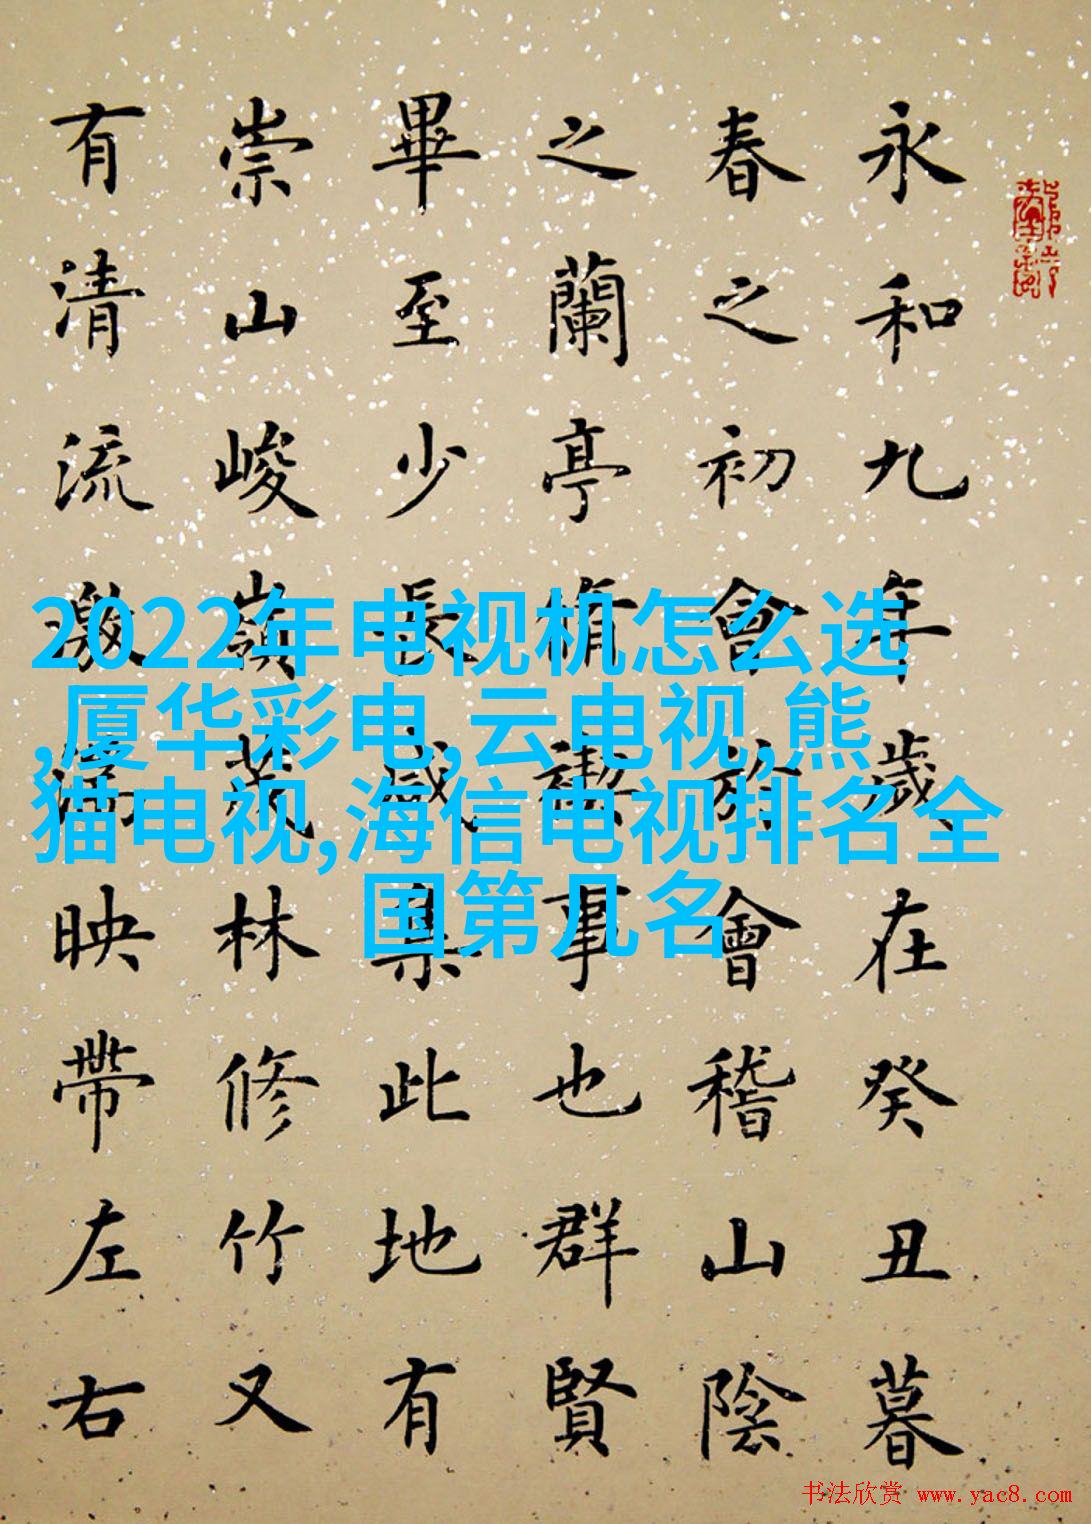 永和九年歲在癸丑暮
春之初會於會稽山陰
之蘭亭脩禊事也群賢
畢至少長咸集此地有
崇山峻嶺茂林修竹又
有清流激湍映帶左右
2022年电视机怎么选
,厦华彩电,云电视,熊
猫电视,海信电视排名全
国第几名
书法欣赏 www.yac8.com